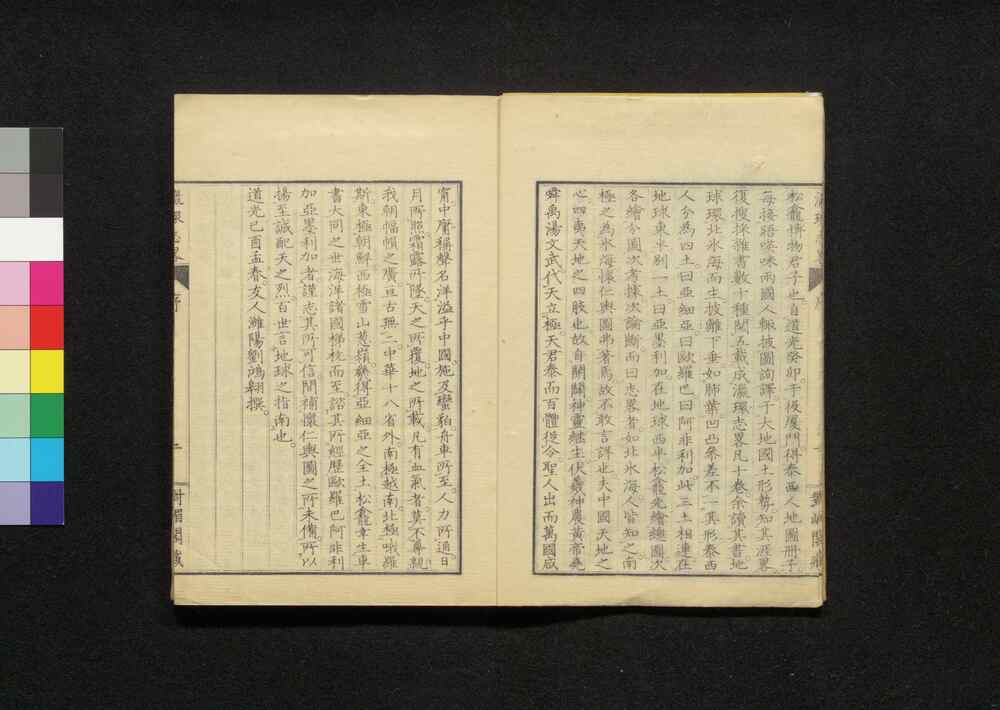 松龕博物君子也自道光癸卯于役厦門得泰西人地圖冊子
每接語啖咪兩國人輒披圖詢譯于大地國土形勢知其涯畧
復搜採雜書數十種閱五載成瀛環志畧凡十卷余讀其書地
球環北氷海而生披離下垂如肺葉凹凸參差不一其形泰西
人分為四土曰亞細亞曰歐羅巴曰阿非利加此三土相連在
地球東半別一土曰亞墨利加在地球西半松龕先繪總圖次
各繪分圖次考據次論斷而曰志畧者如北氷海人皆知之南
極之為氷海懷仁輿圖弗著焉故不敢言詳也夫中國天地之
心四夷天地之四肢也故自開闢神靈繼生伏羲神農黃帝堯
舜禹湯文武代天立極天君泰而百體從令聖人出而萬國咸
甯中庸稱聲名洋溢乎中國施及蠻貊舟車所至人力所通日
月所照霜露所墜天之所覆地之所載凡有血氣者莫不尊親
我朝幅幀之廣亘古無二中華十八省外南極越南北極哦羅
斯東極朝鮮西極雪山葱嶺猋得亞細亞之全土松龕幸生車
書大同之世海洋諸國梯杭而至諮其所經歷歐羅巴阿非利
加亞墨利加者謹志其所可信間補懷仁輿圖之所未備所以
揚至誠配天之烈百世言地球之指南也
道光己酉孟春友人濰陽劉鴻翱撰
序
二
對嵋閣藏